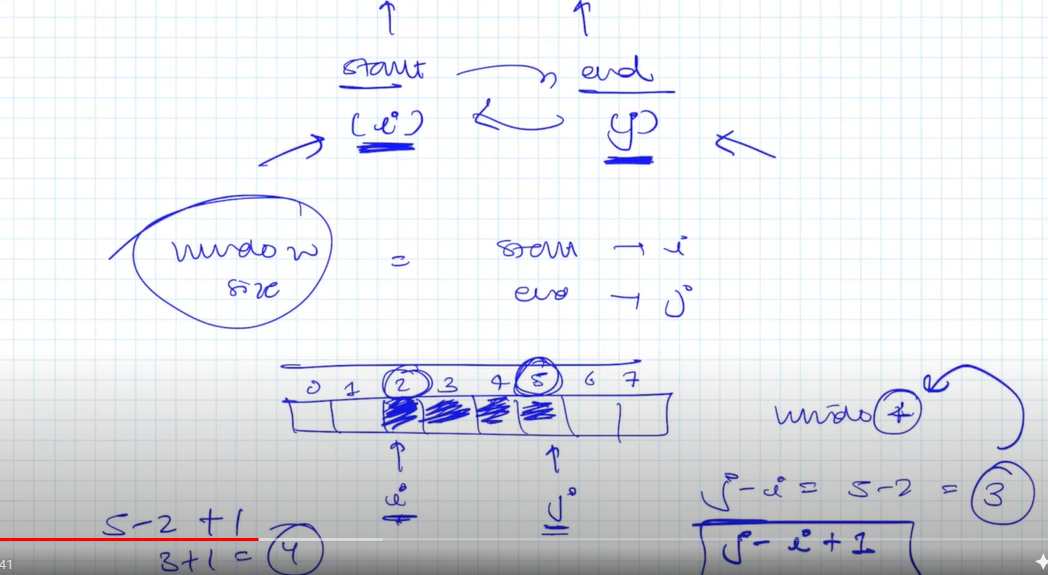 start end
(i) (j)
window size = start → i
end → j
0 1 2 3 4 5 6 7
window 4
i j
j - i = 5 - 2 = 3
5 - 2 + 1
j - i + 1
3 + 1 = 4
41